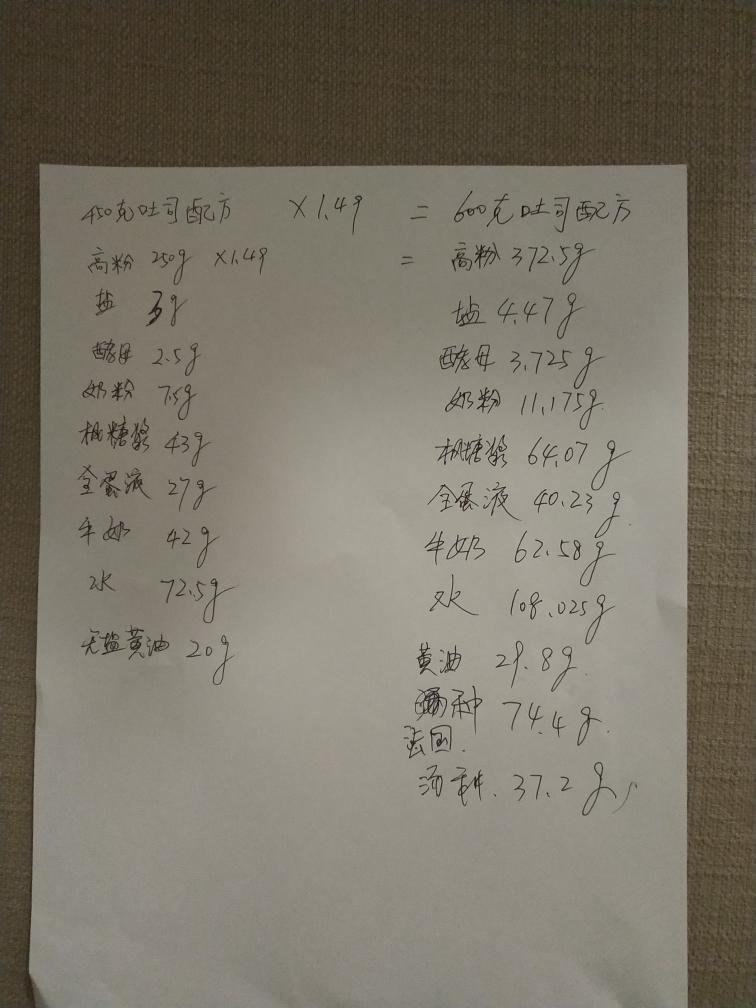 450克吐司配方 ×1.49 = 600克吐司配方
高粉 250g ×1.49 = 高粉 372.5g
盐 3g 盐 4.47g
酵母 2.5g 酵母 3.725g
奶粉 7.5g 奶粉 11.175g
枫糖浆 43g 枫糖浆 64.07g
全蛋液 27g 全蛋液 40.23g
牛奶 42g 牛奶 62.58g
水 72.5g 水 108.025g
无盐黄油 20g 黄油 29.8g
种 74.4g
法国
汤种 37.2g